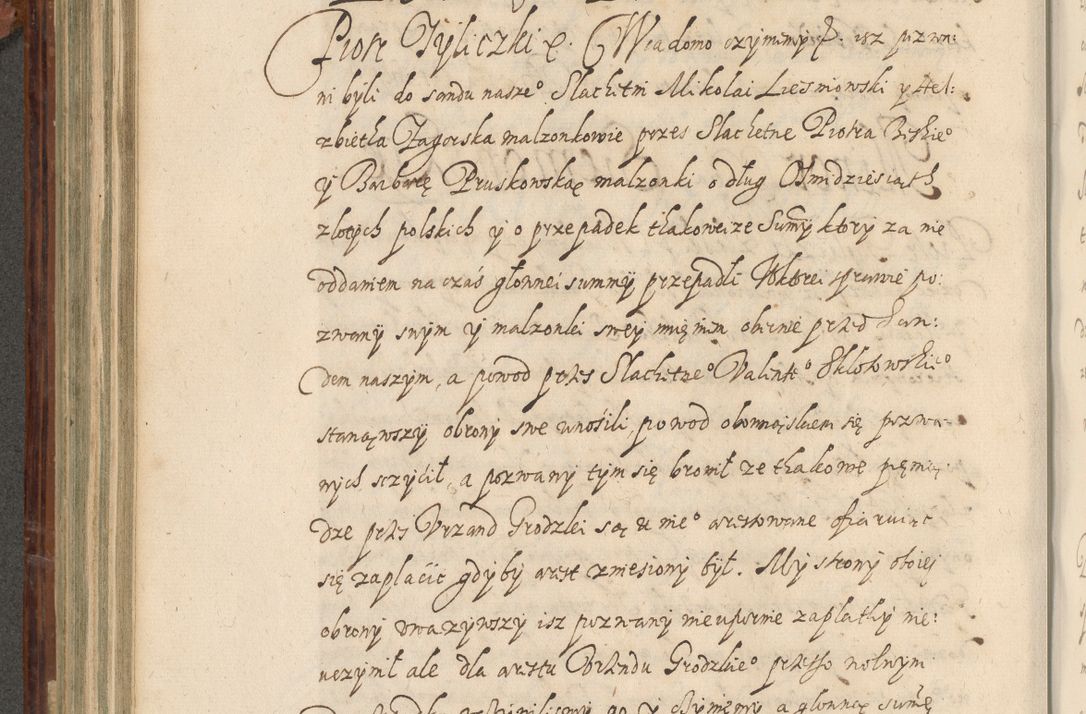 Piotr Tyliczki etc. Wiadomo czynimy etc. isz pozwa:
ni byli do sandu nasze° Slachetni Mikolai Liesniowski y Hel:
zbietha Zagorska malzonkowie przes Slachetne Piotra
y Barbarę Pruskowską malzonki o dług Osmidziesiąth
zlotych polskich y o przepadek thakoweize Summy ktory za nie
oddaniem na czás głownei summy przepadli W ktorei sprawie po:
zwany swym y malzonki swey imięniem obecnie przed San:
dem naszym, a powod przes Slachetne° Valente°
stanąwszy obrony swe wnośili, powod obowiąskiem się pozwa:
nych sczyćił, a pozwany tym się bronił ze thakowe pęnią:
dze przes Vrzand Grodzki są u nie° arestowane ofiaruiąc
się zaplaćic gdyby arest zniesiony był. My strony oboiej
obrony vwazywszy isz pozwany nieupornie zaplathy nie:
uczynił ale dla arestu Vrzendu Grodzkie° przetho wolnym
a glowną sumę